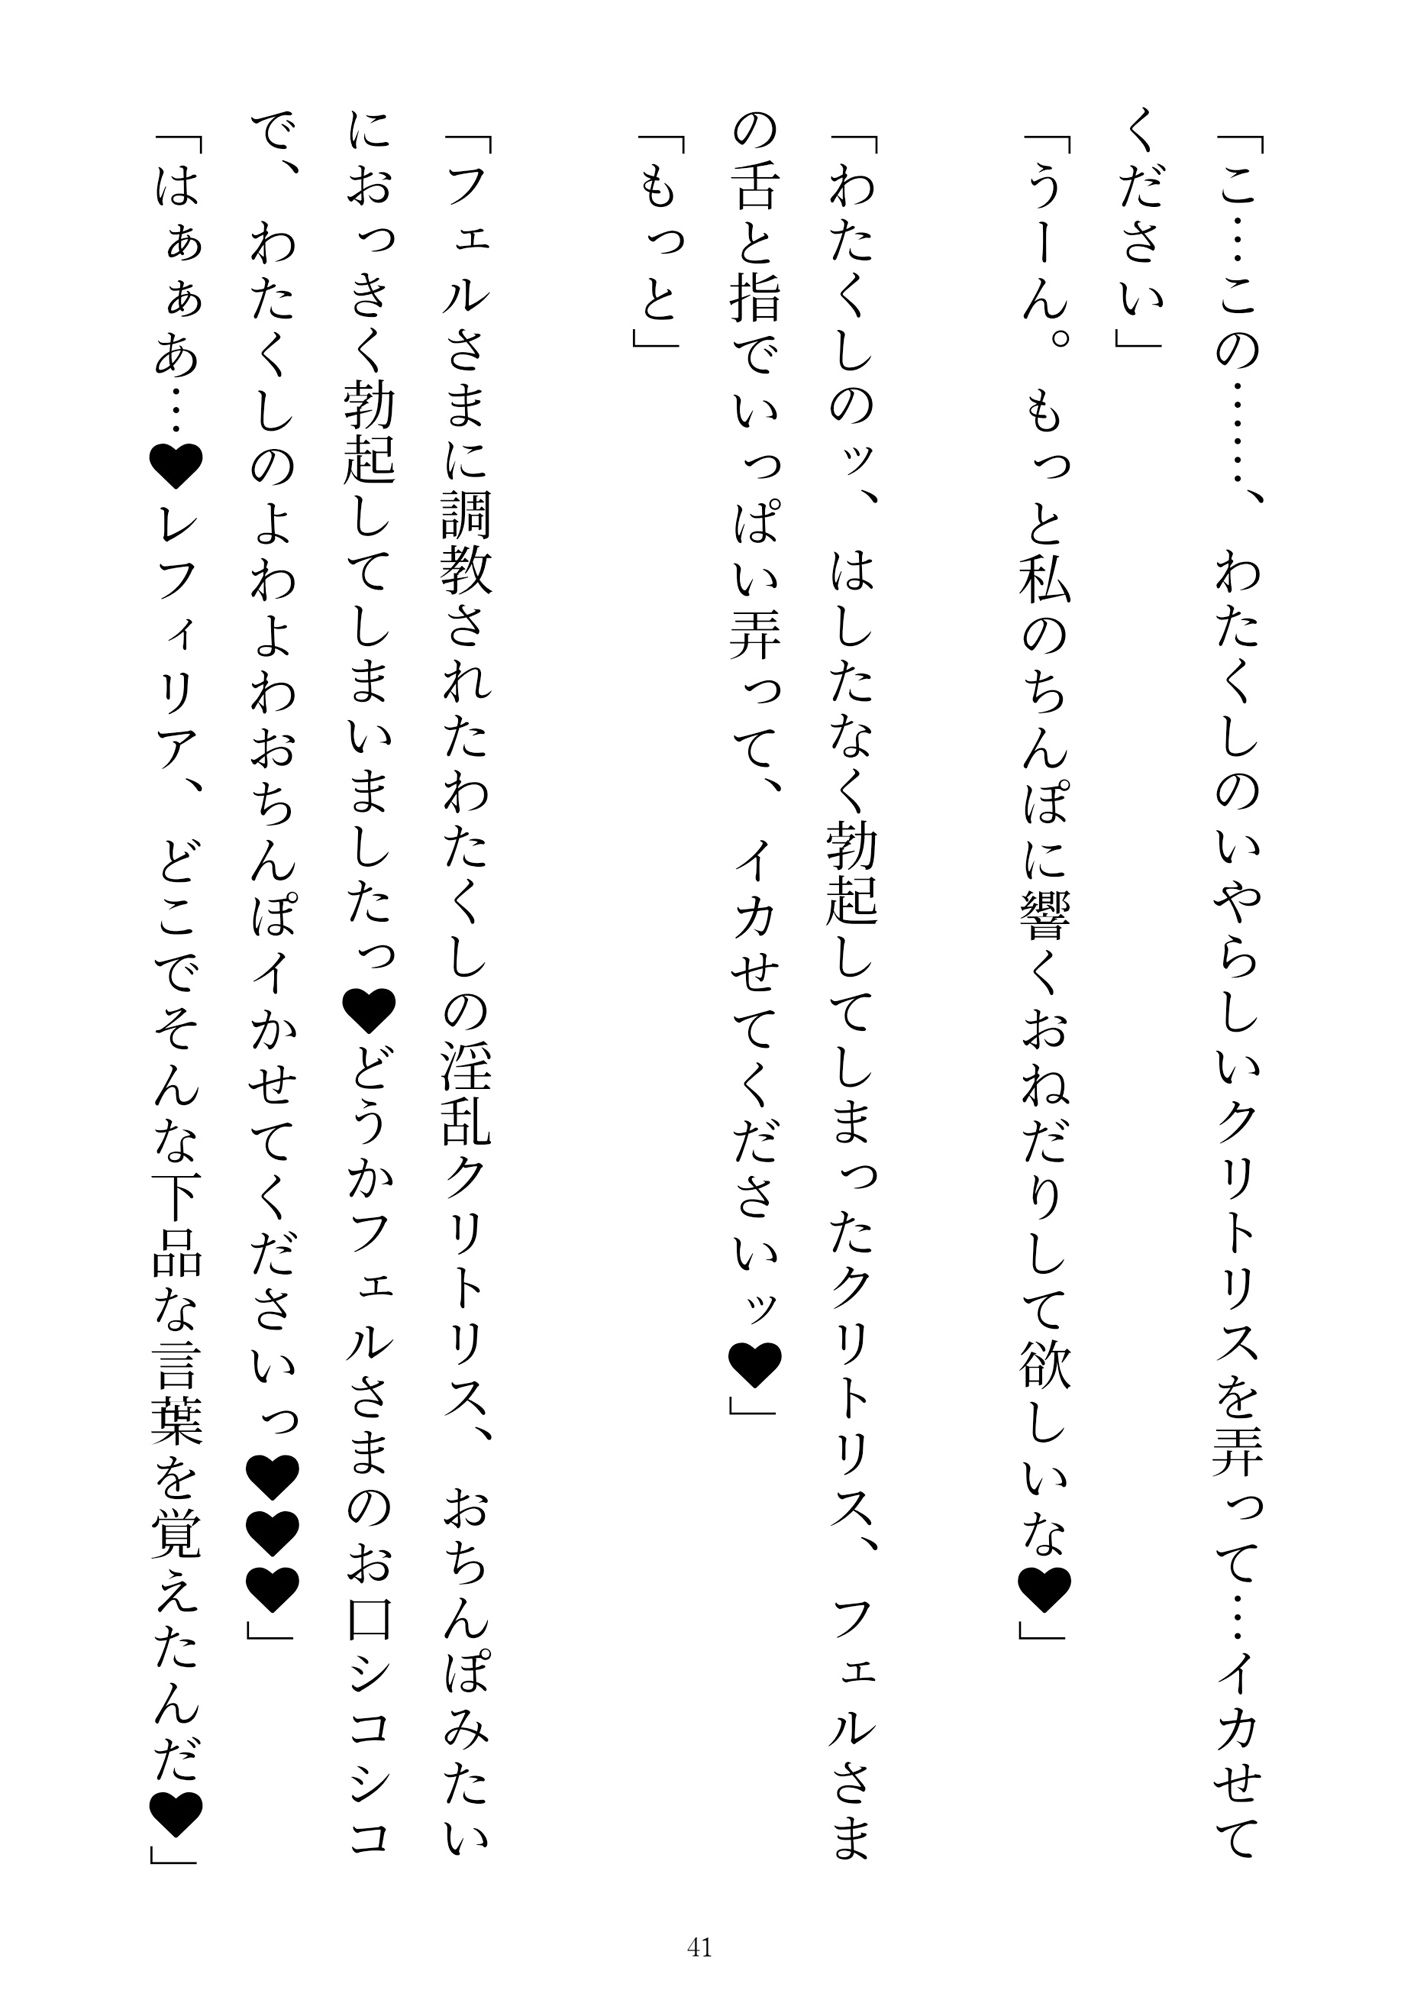 「こ…この……、わたくしのいやらしいクリトリスを弄って…イカせて
ください」
「うーん。もっと私のちんぽに響くおねだりして欲しいな♥」
「わたくしのッ、はしたなく勃起してしまったクリトリス、フェルさま
の舌と指でいっぱい弄って、イカせてくださいッ♥」
「もっと」
「フェルさまに調教されたわたくしの淫乱クリトリス、おちんぽみたい
におっきく勃起してしまいましたっ♥どうかフェルさまのお口シコシコ
で、わたくしのよわよわおちんぽイかせてくださいっ♥♥♥」
「はぁぁあ…♥レフィリア、どこでそんな下品な言葉を覚えたんだ♥」
41